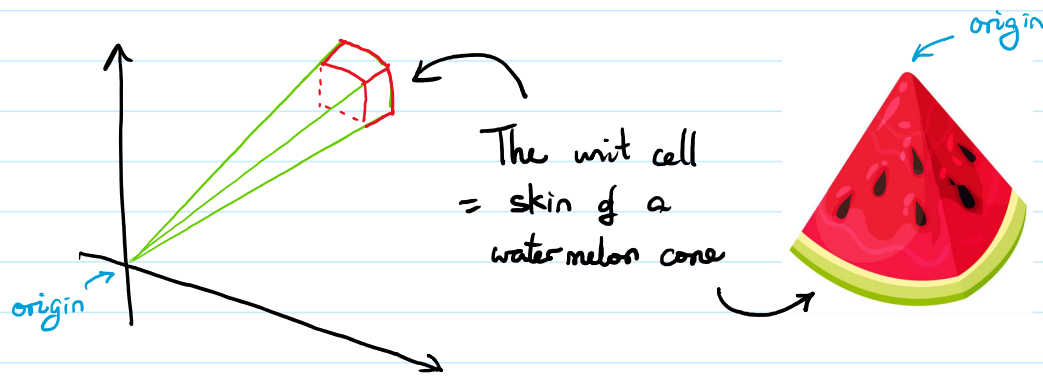 origin
The unit cell
= skin of a
watermelon cone
origin